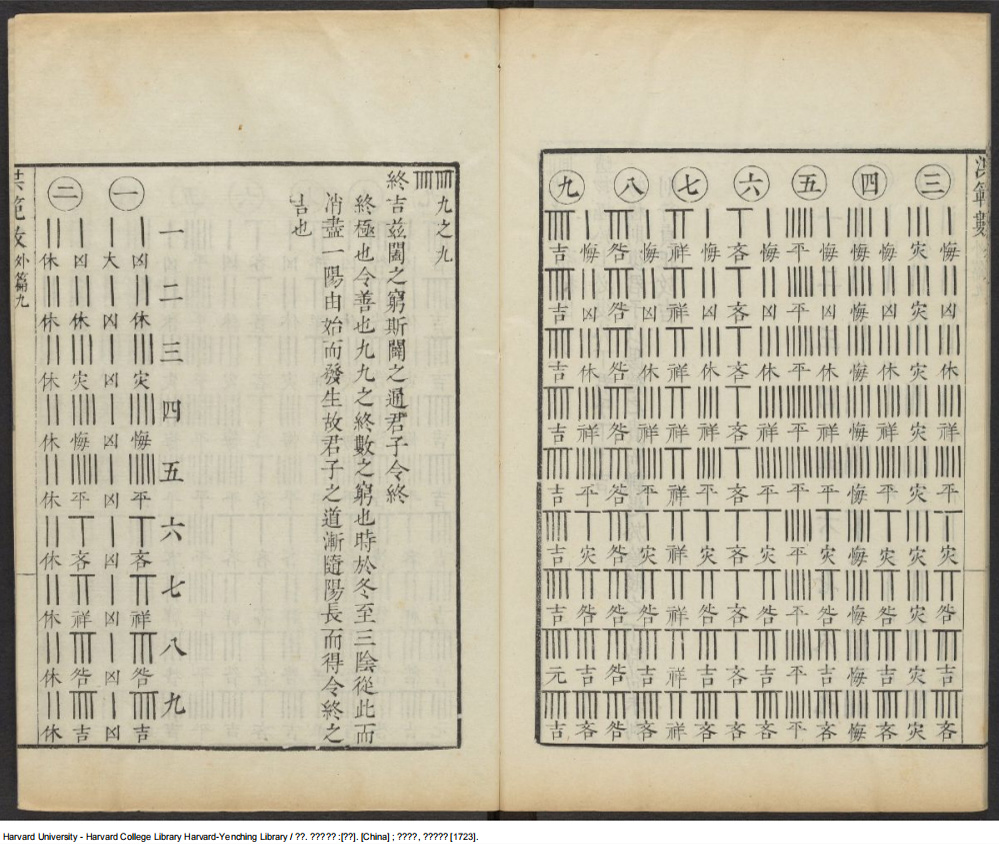 洪範數
三
悔凶休祥平灾咎吉吝
灾灾灾灾灾灾灾灾灾
四
悔凶休祥平灾咎吉吝
悔悔悔悔悔悔悔悔悔
五
悔凶休祥平灾咎吉吝
平平平平平平平平平
六
悔凶休祥平灾咎吉吝
吝吝吝吝吝吝吝吝吝
七
悔凶休祥平灾咎吉吝
祥祥祥祥祥祥祥祥祥
八
悔凶休祥平灾咎吉吝
咎咎咎咎咎咎咎咎咎
九
悔凶休祥平灾咎吉吝
吉吉吉吉吉吉吉元吉
九之九
終吉茲闔之窮斯闢之通君子令終
終極也令善也九九之終數之窮也時於冬至三陰從此而
消盡一陽由始而發生故君子之道漸隨陽長而得令終之
吉也
一二三四五六七八九
一
凶休灾悔平吝祥咎吉
大凶凶凶凶凶凶凶凶
二
凶休灾悔平吝祥咎吉
休休休休休休休休休
範數 外篇九
Harvard University - Harvard College Library Harvard-Yenching Library / ??. ????? :[??]. [China] ; ????, ????? [1723].